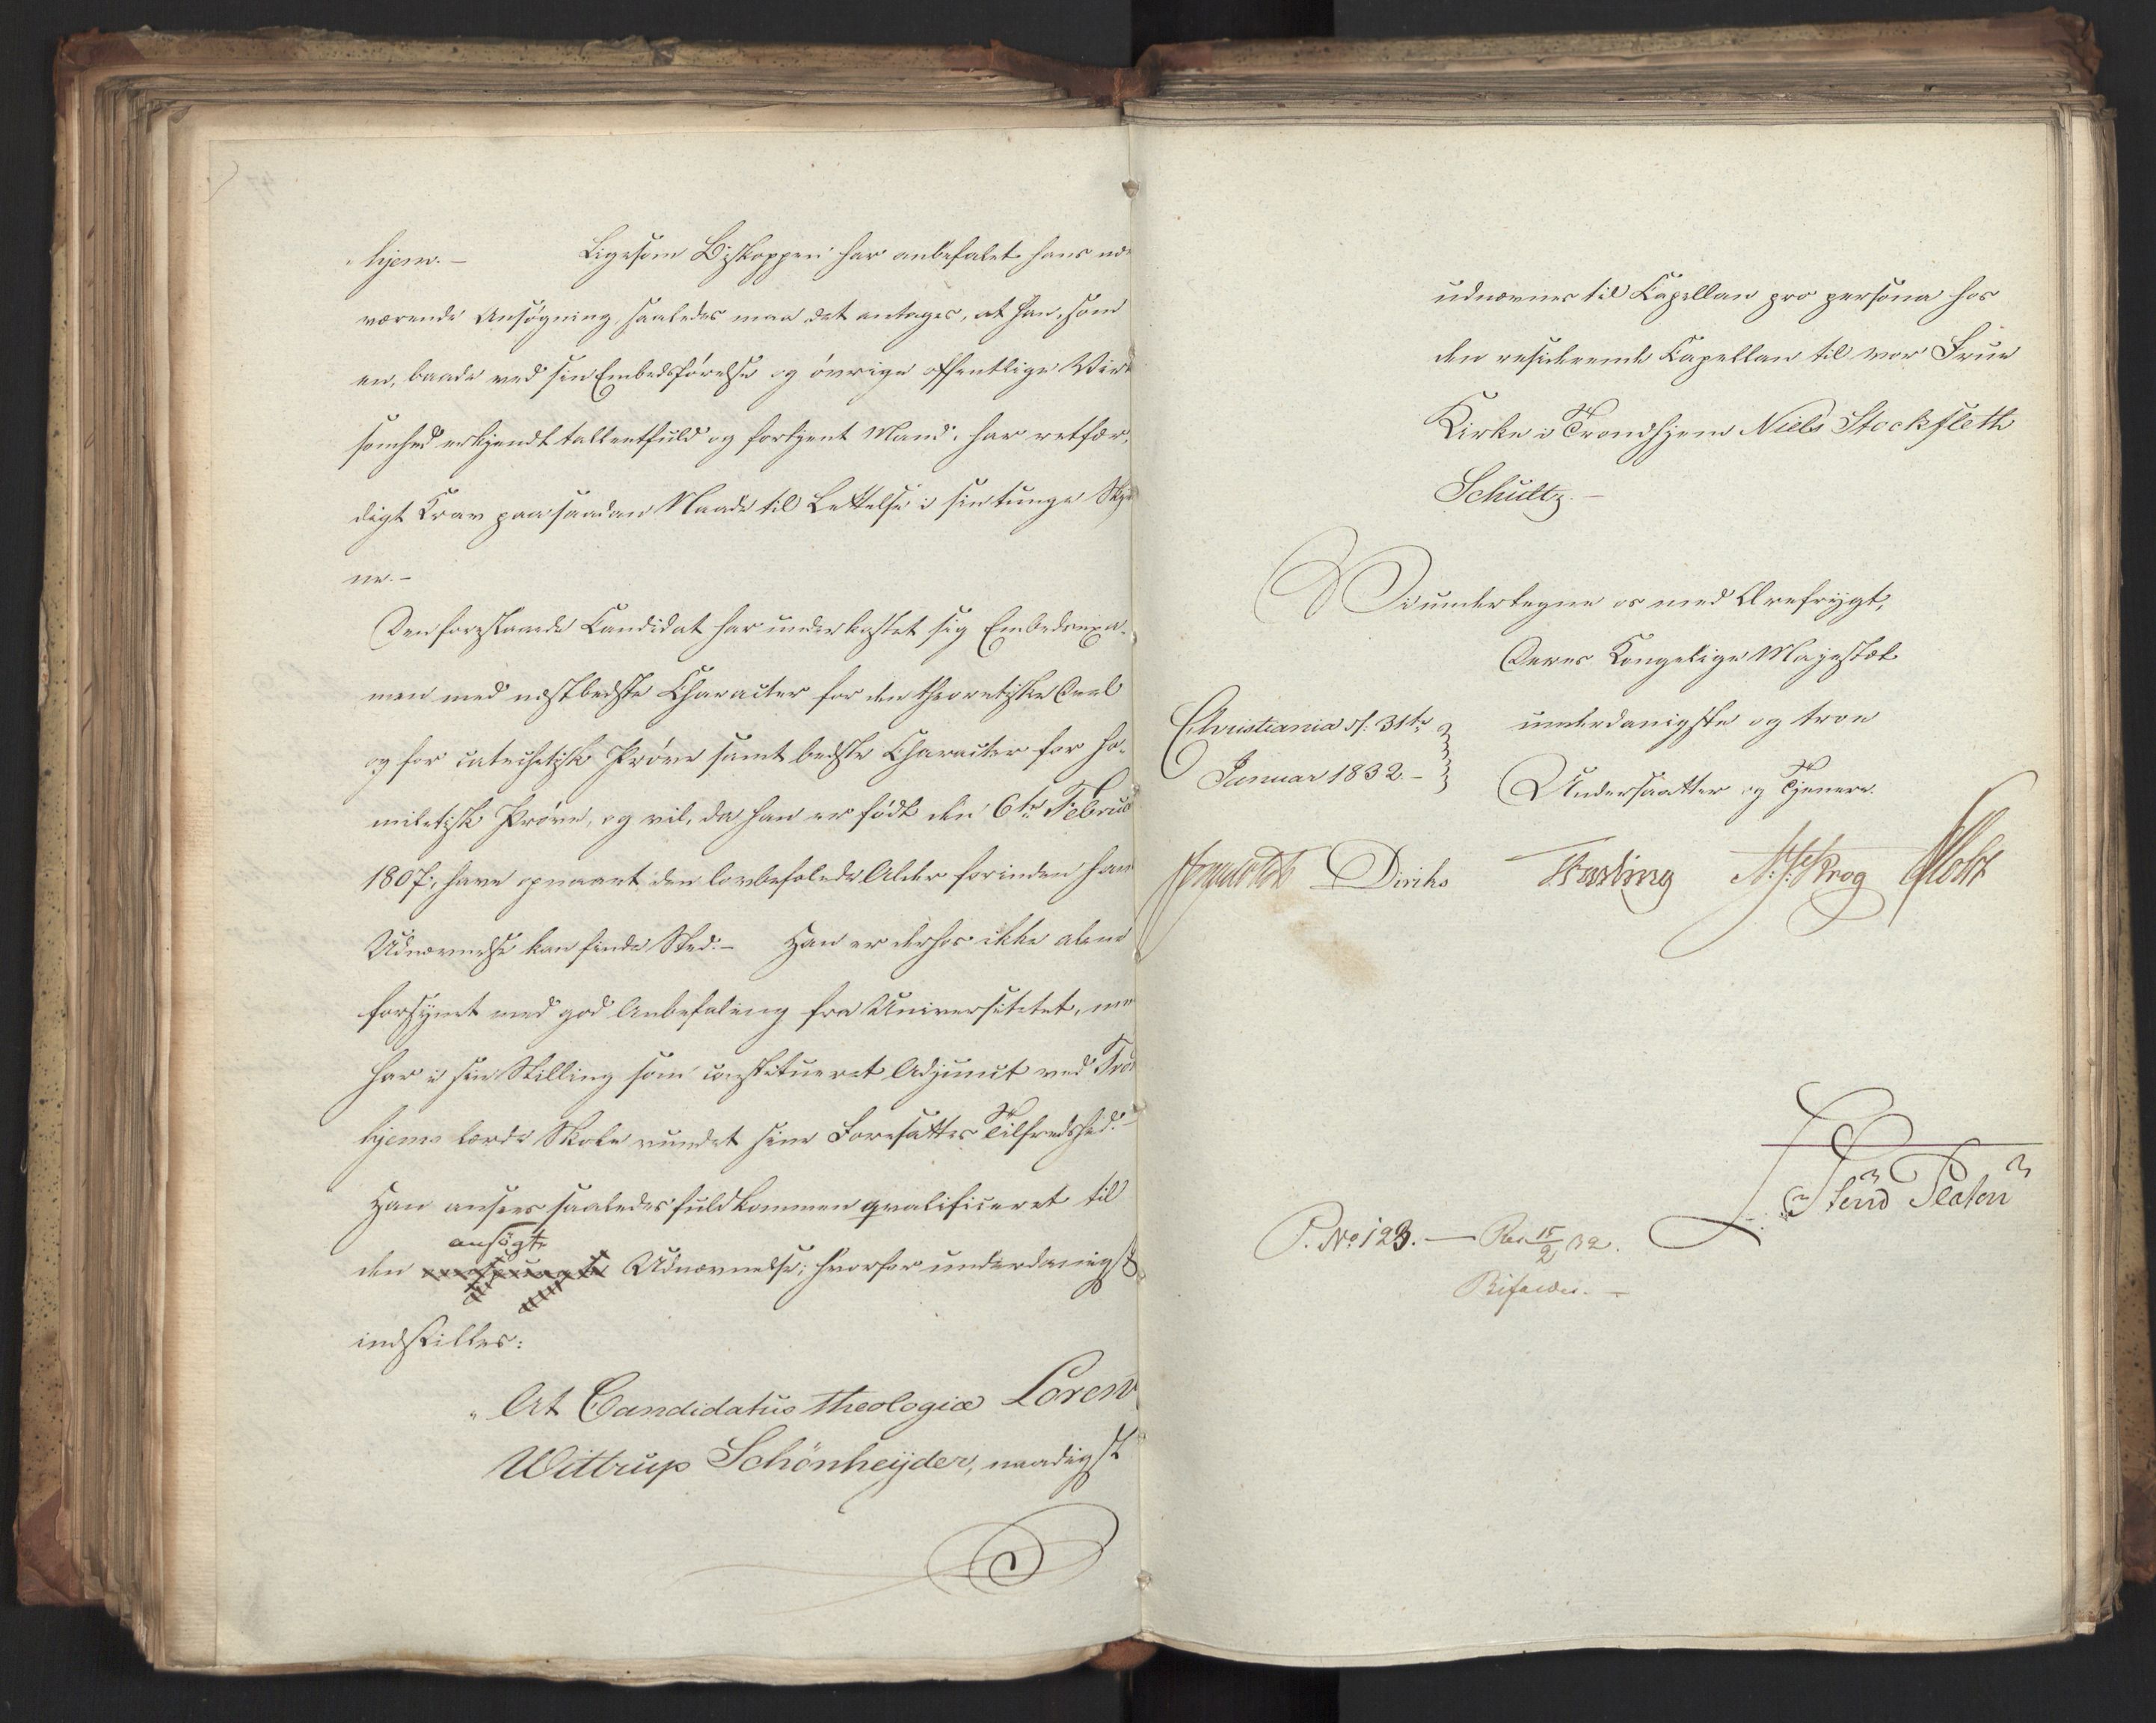 hjem. – Ligesom Biskoppen har anbefalet hans nær
værende Ansøgning, saaledes maa det antages, at han, som
en, baade ved sin Embedsførelse og øvrige offentlige Virk
somhed erkjendt talentfuld og fortjent Mand, har retfær
digt Krav paa saadan Maade til Lettelse i sin tunge
ne. –
Den foreslaaede Candidat har underkastet sig Embedsexa-
men med næstbedste Character for den theoretiske Deel
og for catechetisk Prøve samt bedste Character for ho-
miletisk Prøve, og vil, da han er født den 6te Februar
1807, have opnaaet den lovbefalede Alder forinden hans
Udnævnelse kan finde Sted. – Han er derhos ikke alene
forsynet med god Anbefaling fra Universitetet, men
har i sin Stilling som constitueret Adjunct ved Trond
hjems lærde Skole vundet sine Foresattes Tilfredshed. –
Han ansees saaledes fuldkommen qvalificeret til
ansøgte
den Udnævnelse; hvorfor underdanigst
indstilles:
„At Candidatus theologiæ Loren
Wittrup Schönheyder, naadigst
udnævnes til Capellan pro persona hos
den residerende Capellan til vor Frue
Kirke i Trondhjem Niels Stockfleth
Schultz. –
Vi undertegne os med Ærefrygt,
Deres Kongelige Majestæt
Christiania d: 31te underdanigste og troe
Januar 1832 – Undersaatter og Tjenere.
Diriks Fasting Krog Holst
Sternd Platou
P. No 123. – Res. 15/2 32.
Bifaldes. –